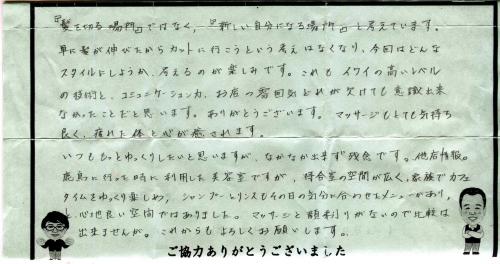 『髪を切る場所』ではなく、『新しい自分になる場所』と考えています。
単に髪が伸びたからカットに行こうという考えはなくなり、今回はどんな
スタイルにしようか、考えるのが楽しみです。これも イワイの高いレベル
の技術と、コミュニケーション力、お店の雰囲気どれが欠けても意識出来
なかったことだと思います。ありがとうございます。マッサージもとても気持ち
良く、疲れた体と心が癒されます。
いつももっとゆっくりしたいと思いますが、なかなか出来ず残念です。他店情報。
鹿島に行った時に利用した美容室ですが、待合室の空間が広く、家族でカフェ
タイムをゆっくり楽しめ、シャンプーとリンスもその日の気分に合わせたメニューがあり、
心地良い空間ではありました。マッサージと顔剃りがないので比較は
出来ませんが。これからもよろしくお願いします。
ご協力ありがとうございました